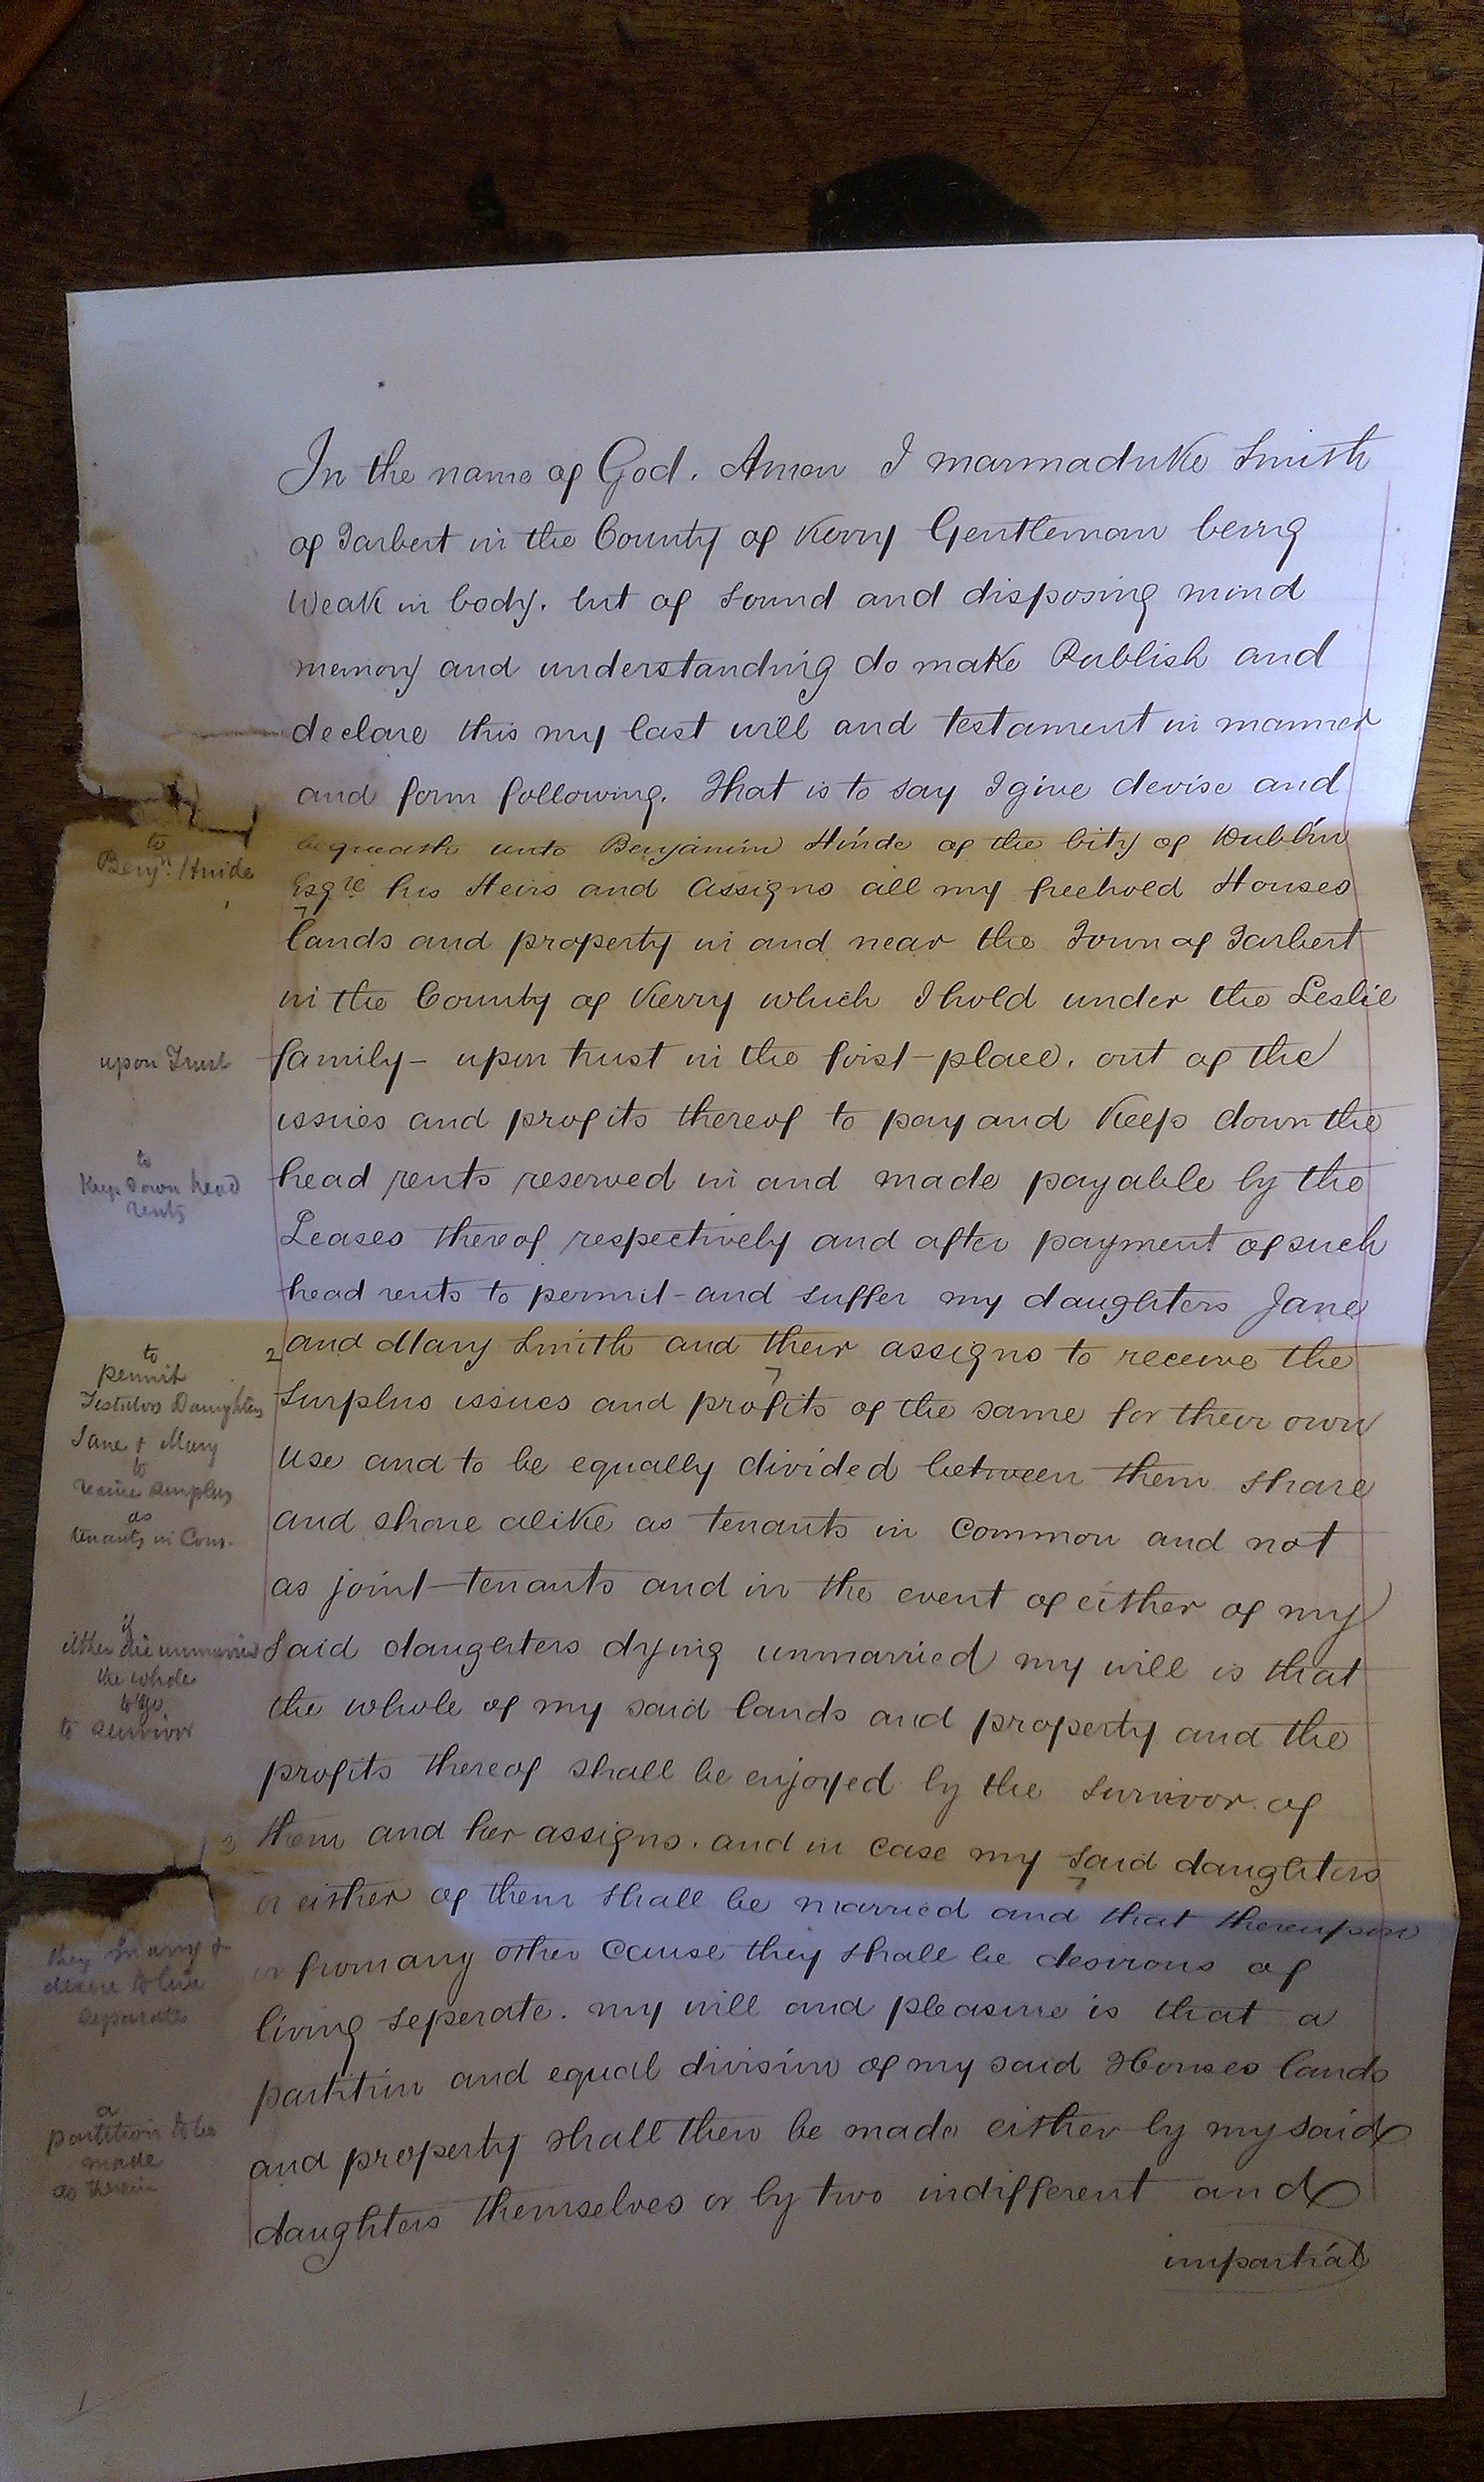 In the name of God. Amen I Marmaduke Smith
of Tarbert in the County of Kerry Gentleman being
Weak in body. but of Sound and disposing mind
memory and understanding do make Publish and
declare this my last will and testament in manner
and form following. That is to say I give devise and
bequeath unto Benjamin Hinde of the City of Dublin
to
Benjn. Hinde
Esqre his Heirs and Assigns all my freehold Houses
lands and property in and near the Town of Tarbert
in the County of Kerry which I hold under the Leslie
upon Trust
family - upon trust in the first place. out of the
issues and profits thereof to pay and Keep down the
to
Keep down head
rents
head rents reserved in and made payable by the
Leases thereof respectively and after payment of such
head rents to permit and suffer my daughters Jane
2 and Mary Smith and their assigns to receive the
to
permit
Testators Daughters
Jane & Mary
to
receive surplus
as
tenants in Com.
Surplus issues and profits of the same for their own
use and to be equally divided between them share
and share alike as tenants in Common and not
as joint tenants and in the event of either of my
if
either die unmarried
the whole
to go
to survivor
Said daughters dying unmarried my will is that
the whole of my said lands and property and the
profits thereof shall be enjoyed by the Survivor of
3 them and her assigns. and in case my said daughters
or either of them shall be married and that thereupon
they marry &
desire to live
separate
or from any other Cause they shall be desirous of
living seperate. my will and pleasure is that a
partition and equal division of my said Houses lands
a
partition to be
made
as therein
and property shall then be made either by my said
daughters themselves or by two indifferent and
impartial
1